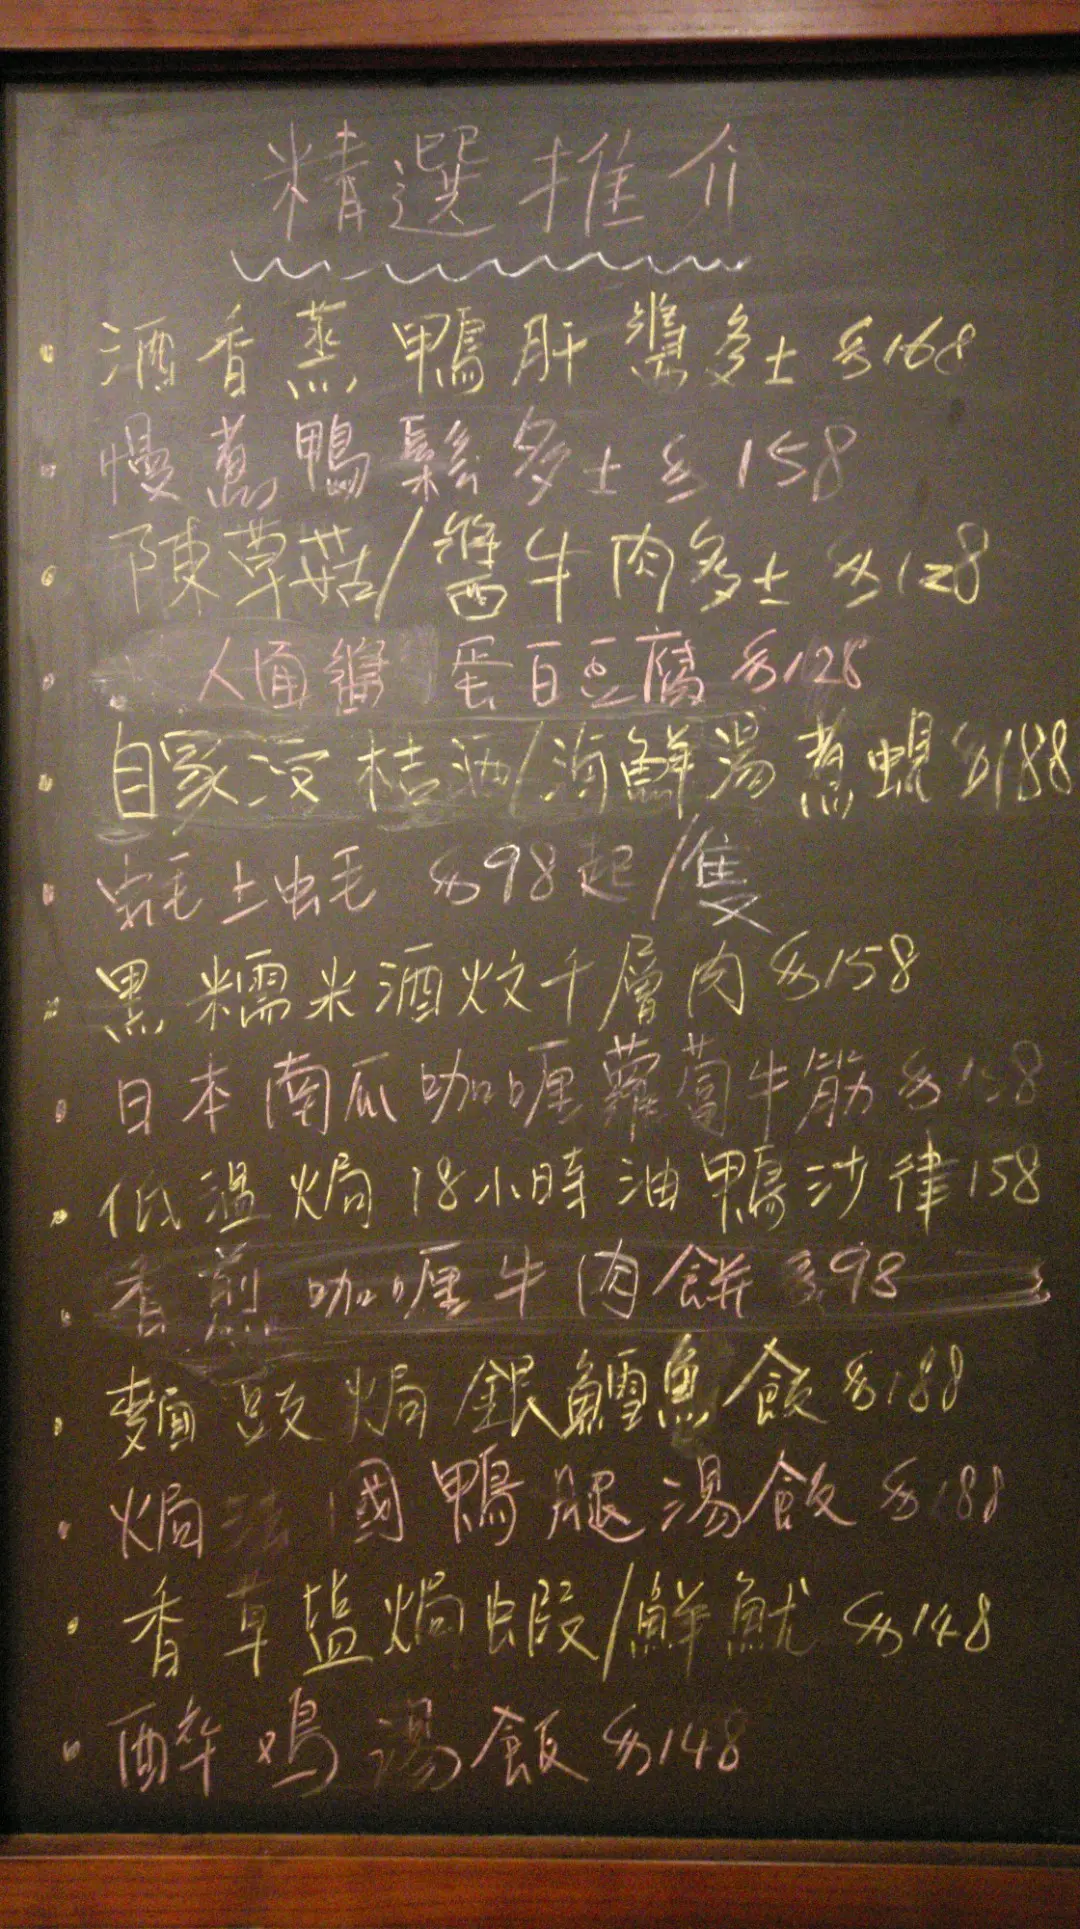 精選推介
酒香蒸鴨肝醬多士 $168
慢煮鴨鬆多士 $158
陳草菇/醬牛肉多士 $128
醬 蛋白豆腐 $128
自家浸桔酒/海鮮湯煮蜆 $188
$98起/隻
黑糯米酒炆千層肉 $158
日本南瓜咖喱蘿蔔牛筋
低溫焗18小時油鴨沙律158
香煎咖喱牛肉餅 $98
麵豉焗銀鱈魚飯 $188
焗法國鴨腿湯飯 $188
香草塩焗蝦/鮮魷 $148
醉鳮湯飯 $148